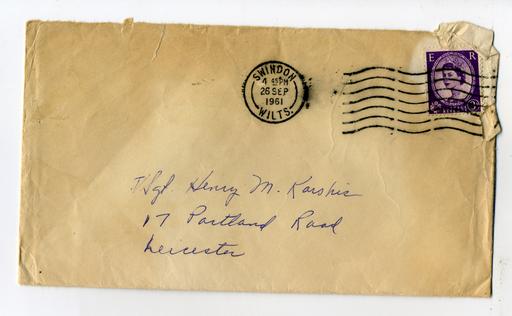 SWINDON
26 SEP
1961
WILTS.
E R
T/Sgt. Henry M. Karshis
17 Portland Road
Leicester